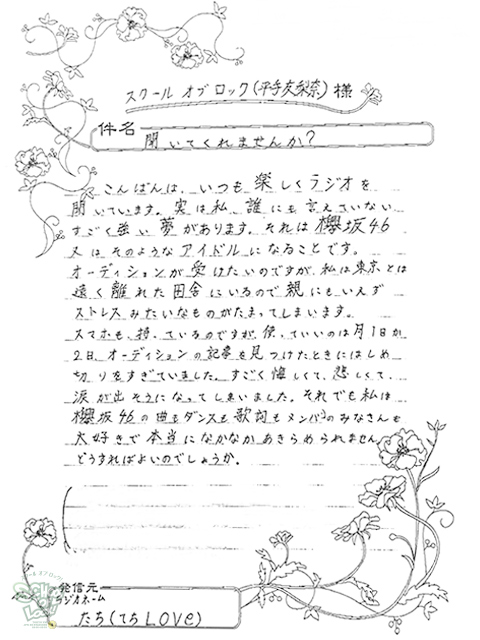 スクール オブ ロック(平手友梨奈)様
件名
聞いてくれませんか?
こんばんは、いつも楽しくラジオを
聞いています。実は私、誰にも言えていない
すごく強い夢があります。それは欅坂46
又はそのようなアイドルになることです。
オーディションが受けたいのですが、私は東京とは
遠く離れた田舎にいるので親にもいえず
ストレスみたいなものがたまってしまいます。
スマホも、持っているのですが、使っていいのは月1日か
2日、オーディションの記事を見つけたときにはしめ
切りをすぎていました。すごく悔しくて、悲しくて、
涙が出そうになってしまいました。それでも私は
欅坂46の曲もダンスも歌詞もメンバーのみなさんも
大好きで本当になかなかあきらめられません。
どうすればよいのでしょうか。
発信元
ラジオネーム
たち(てちLOVE)